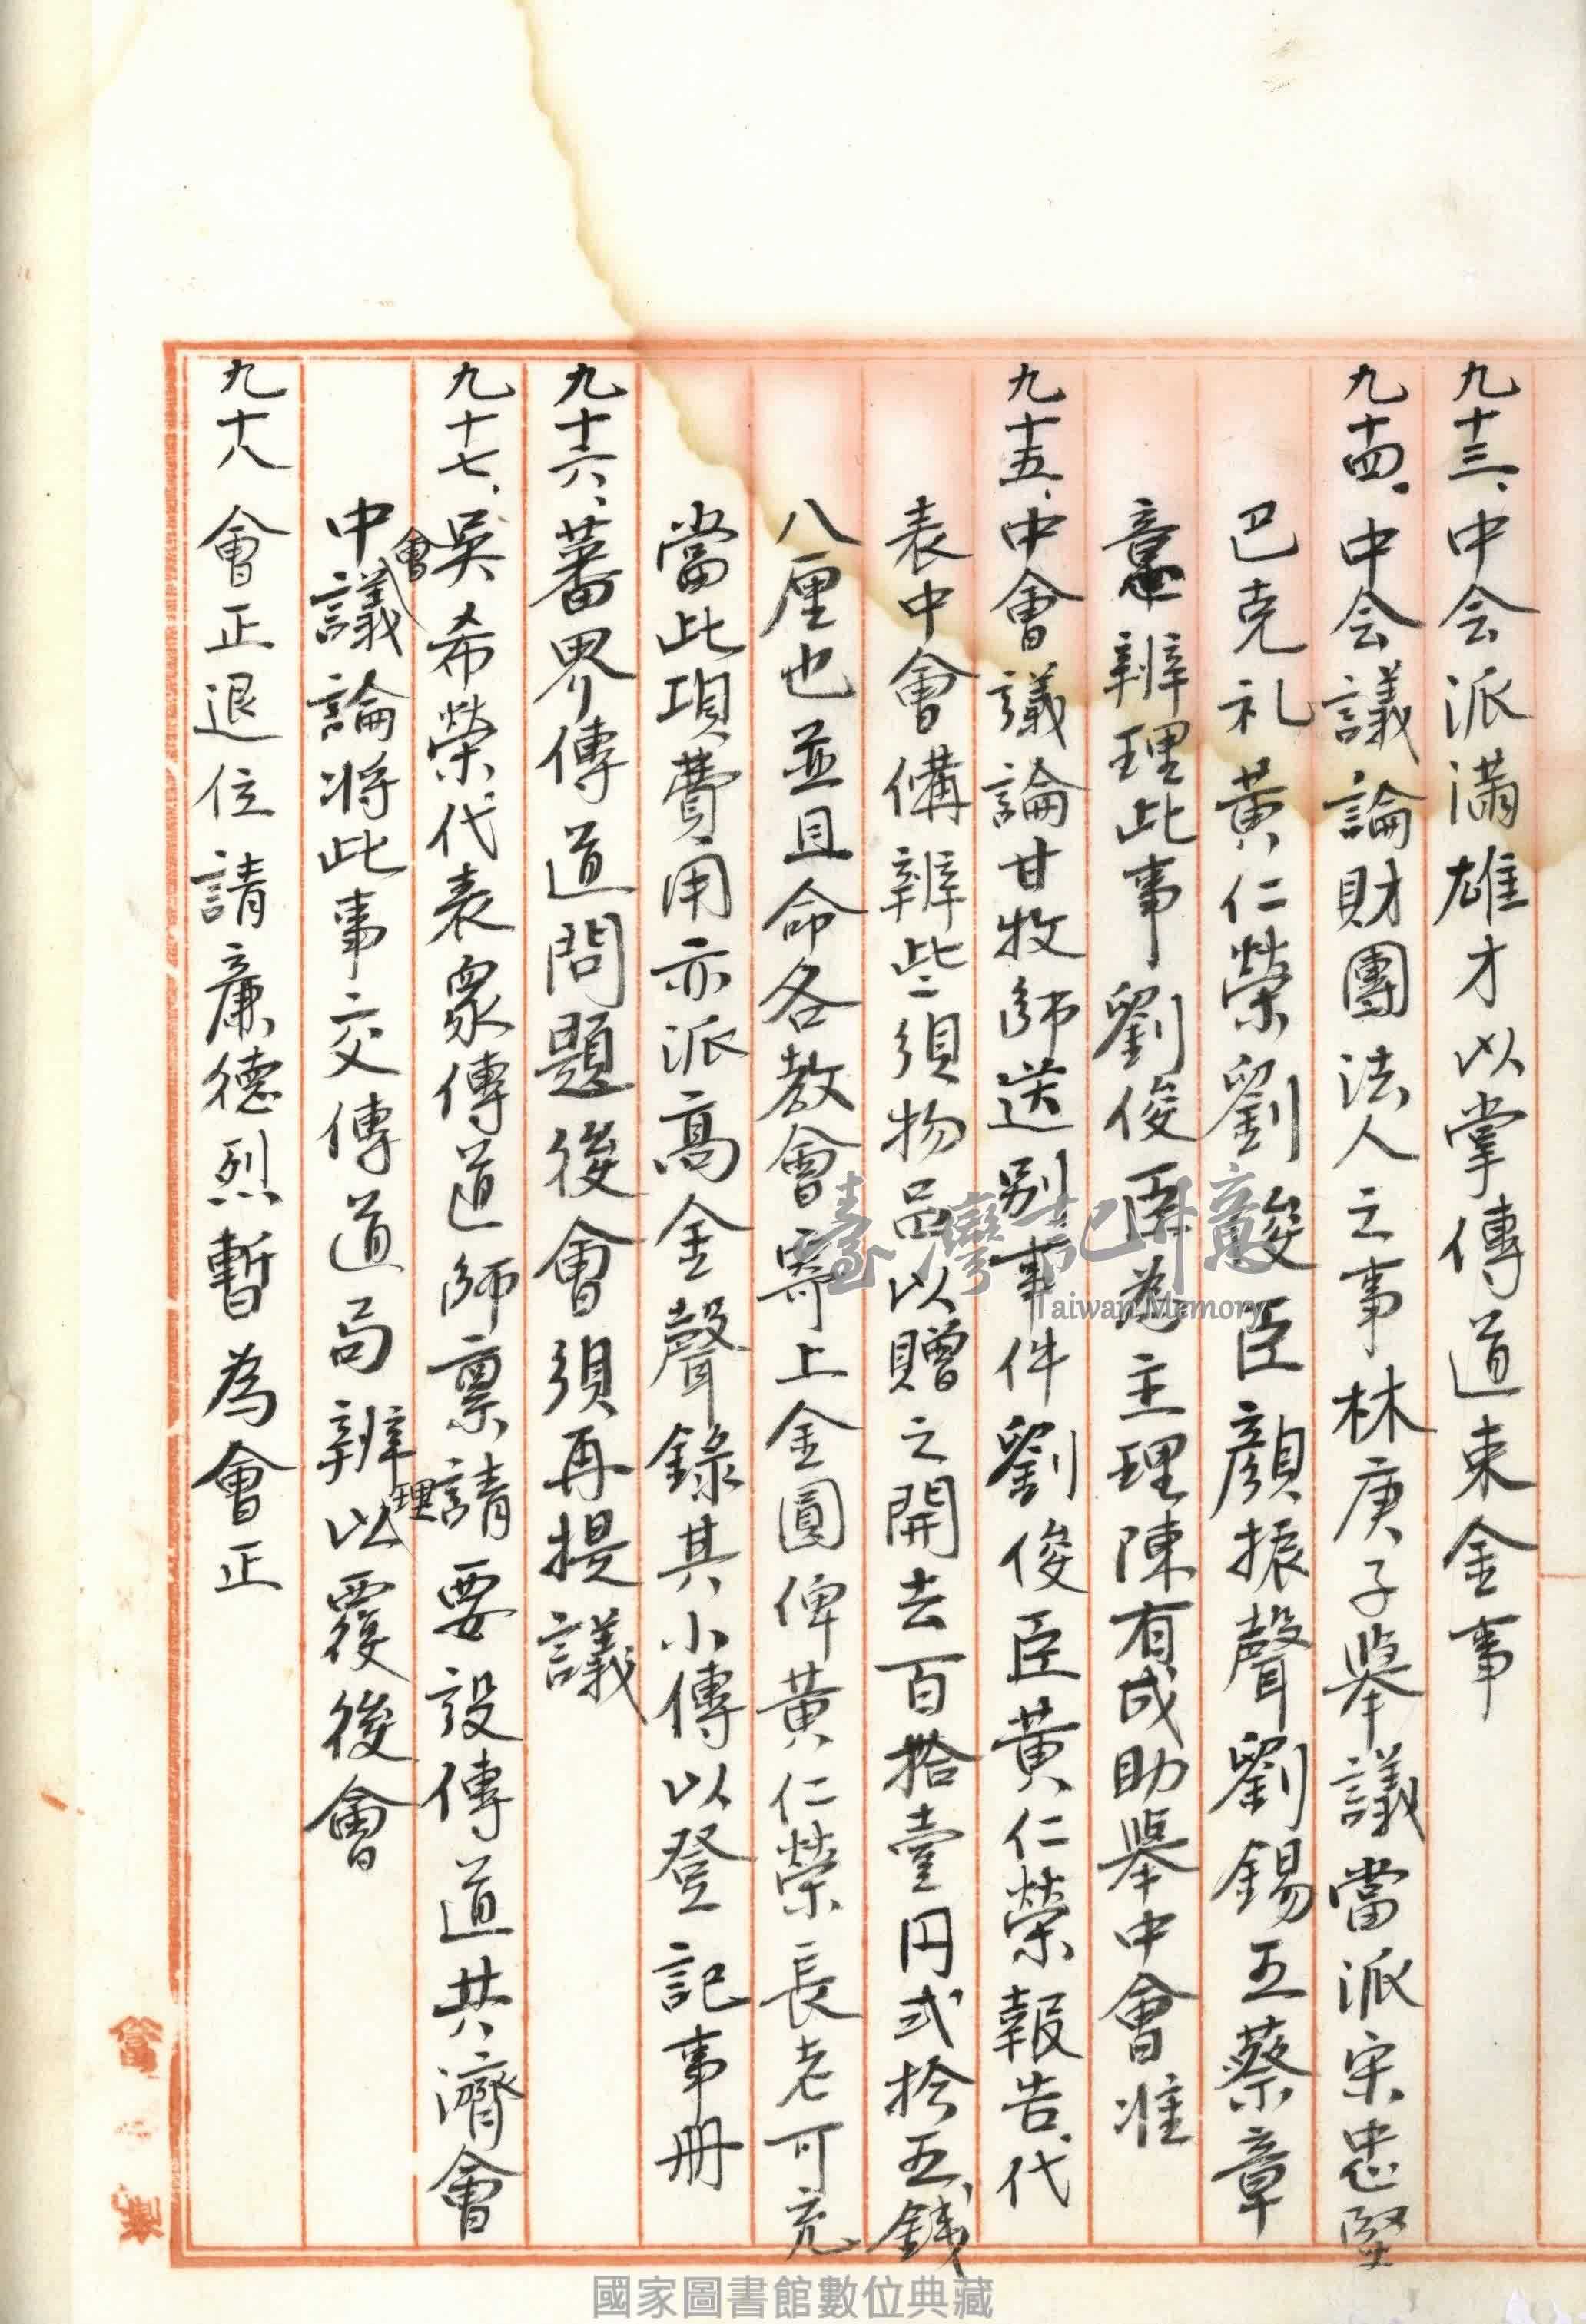 九十三、中会派滿雄才以掌傳道束金事
九十四、中会議論財團法人之事林庚子舉議當派宋忠堅
巴克礼黃仁榮劉俊臣顏振聲劉錫五蔡章
意辦理此事劉俊臣為主理陳有成助舉中會准
九十五、中會議論甘牧師送別事件劉俊臣黃仁榮報告代
表中會備辦些須物品以贈之開去百拾壹円弍拾五錢
八厘也並且命各教會寄上金圓俾黃仁榮長老可充
當此項費用亦派高金聲錄其小傳以登記事册
九十六、蕃界傳道問題後會須再提議
九十七、吳希榮代表眾傳道師稟請要設傳道共濟會
中會議論將此事交傳道局辦理以覆後會
九十八 會正退位請廉德烈暫為會正
臺灣記憶
Taiwan Memory
國家圖書館數位典藏